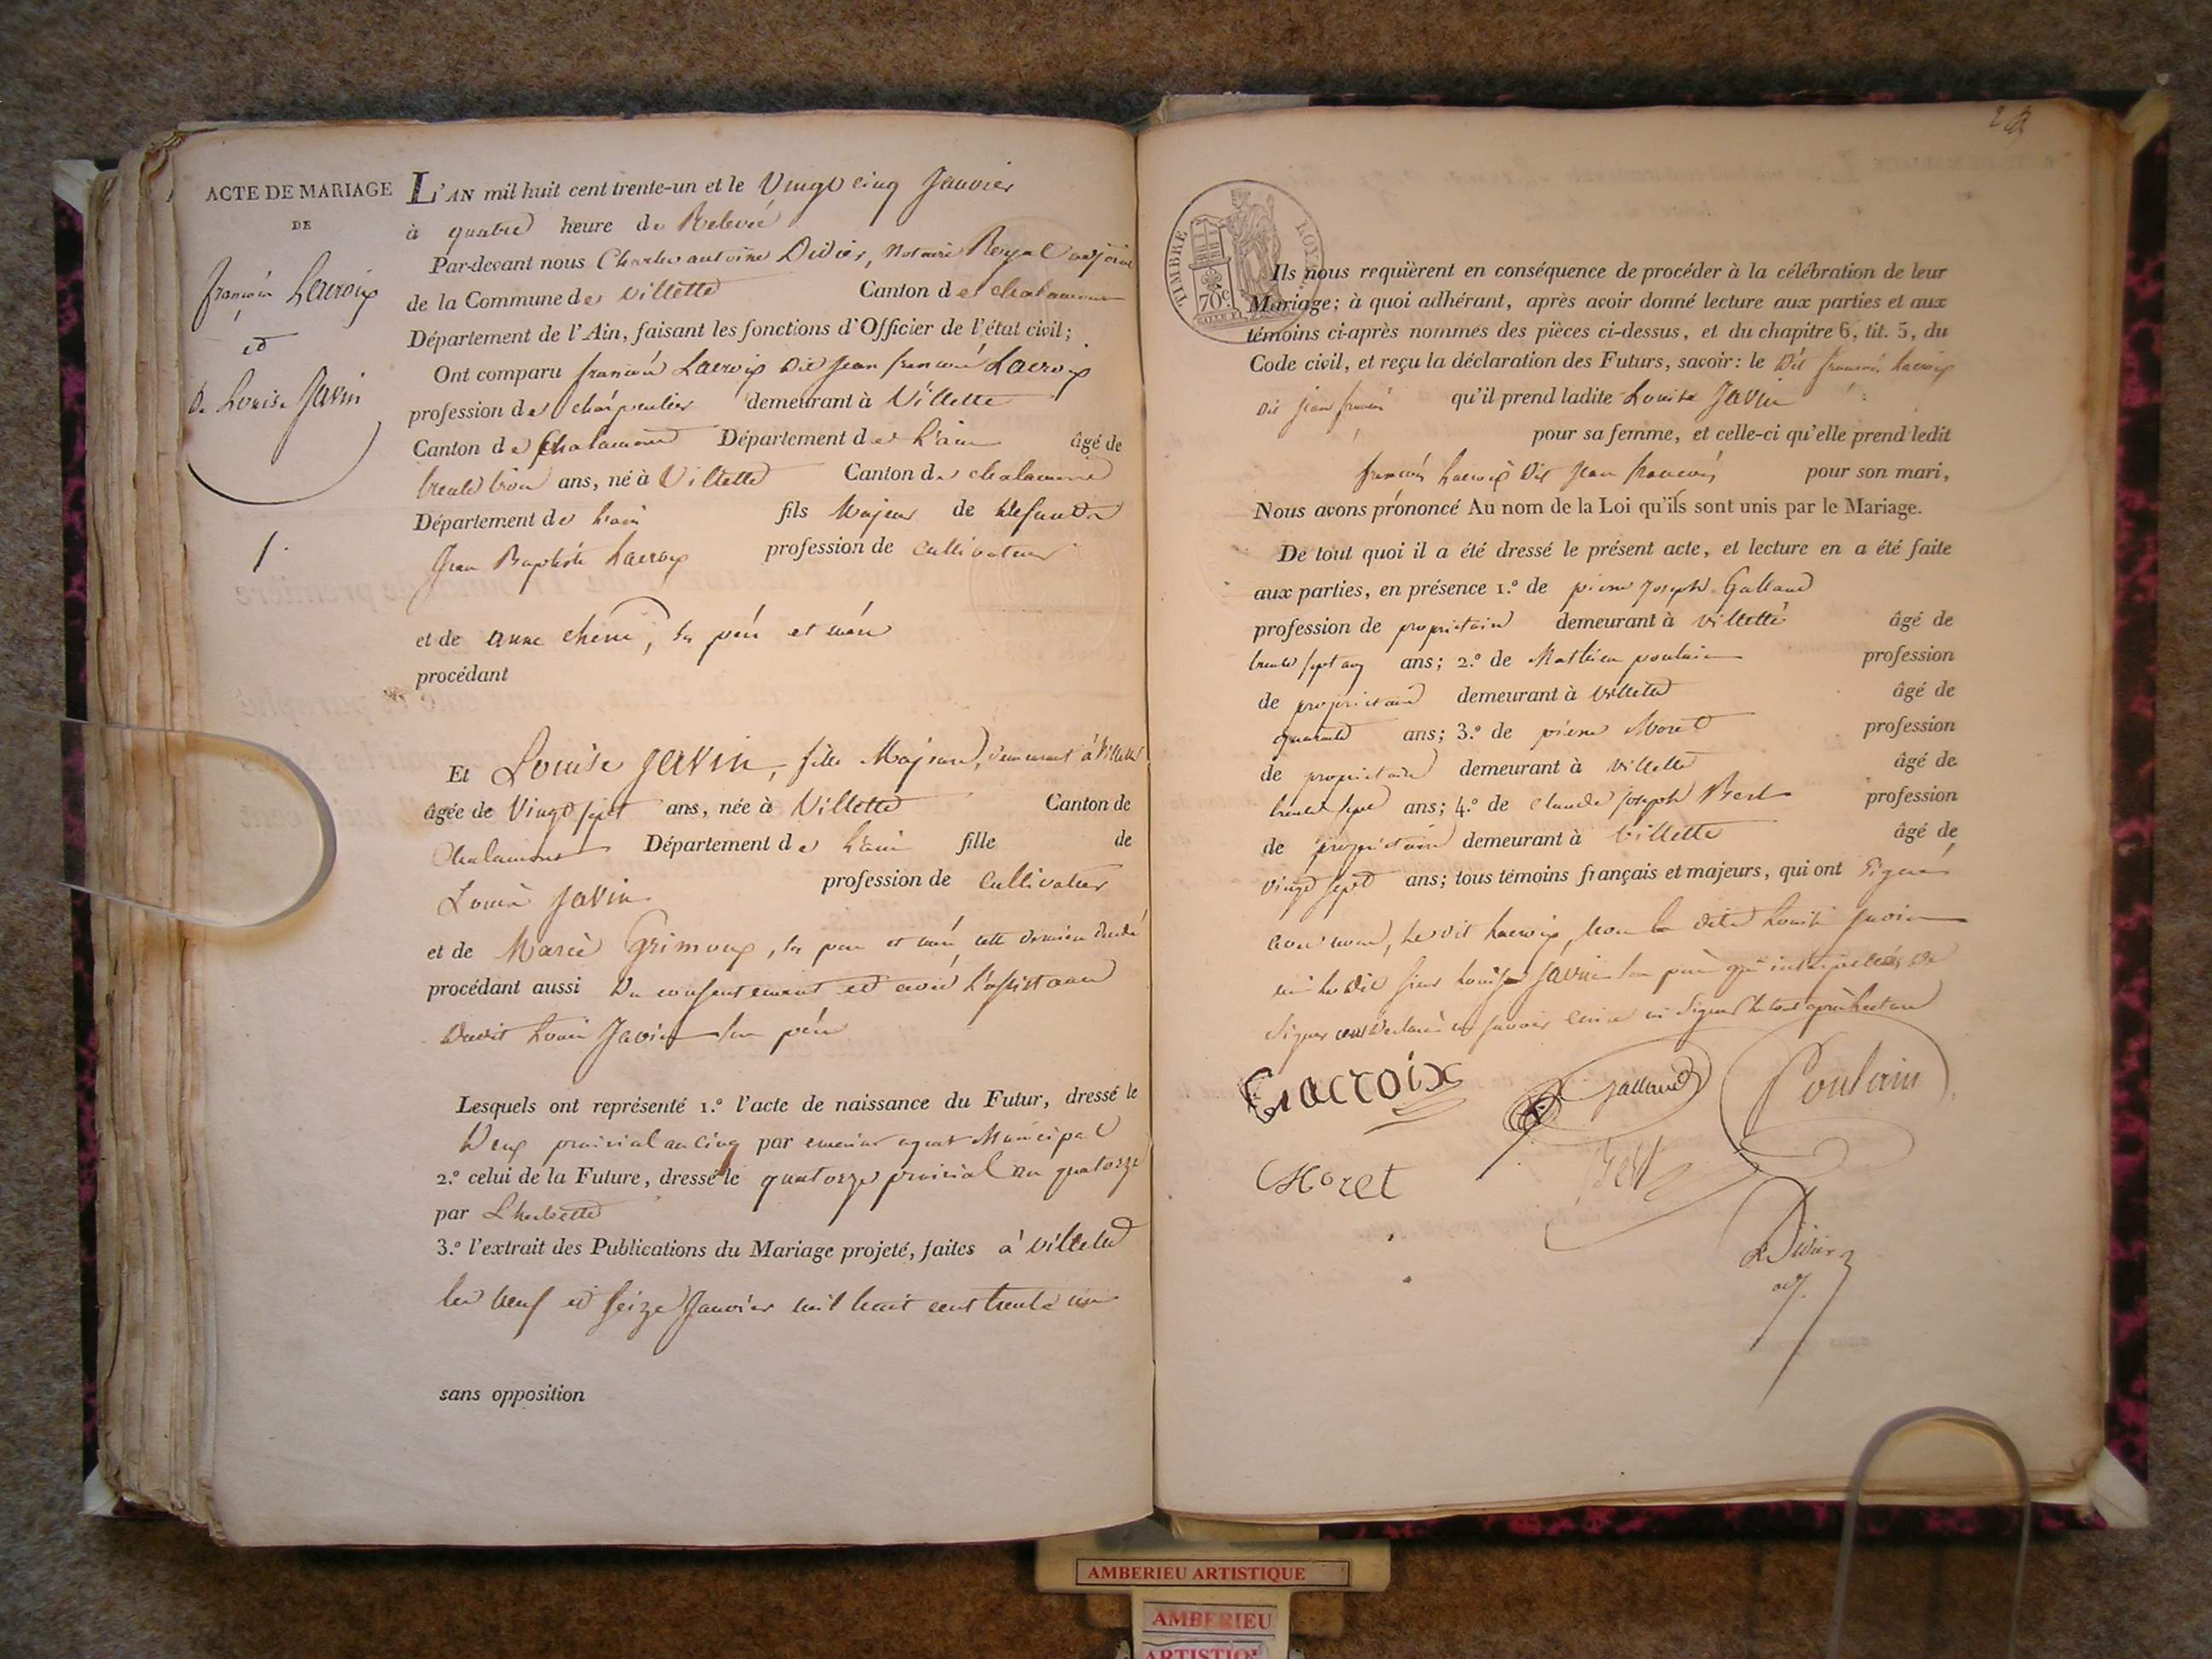 ACTE DE MARIAGE
DE
françois Lacroix
et
De Louise Javin
1.
L'AN mil huit cent trente-un et le Vingt cinq Janvier
à quatre heure de Relevée
Par-devant nous Charles antoine Didier, Notaire Royal adjoint
de la Commune de Villette Canton de chalamont
Département de l'Ain, faisant les fonctions d'Officier de l'état civil;
Ont comparu françois Lacroix dit Jean françois Lacroix
profession de charpentier demeurant à Villette
Canton de Chalamont Département de L'ain âgé de
trente trois ans, né à Villette Canton de chalamont
Département de L'ain fils Majeur de defunts
Jean Baptiste Lacroix profession de Cultivateur
et de anne chene, ses père et mère
procédant
Et Louise Javin, fille Majeure, demeurant à Villette
âgée de Vingt sept ans, née à Villette Canton de
Chalamont Département de L'ain fille de
Louis Javin profession de Cultivateur
et de Marie Grimoux, ses père et mère, cette dernière décédé
procédant aussi Du consentement et avec L'assistance
Dudit Louis Javin son père
Lesquels ont représenté 1.º l'acte de naissance du Futur, dressé le
Deux prairial an Cinq par agent Municipal
2.º celui de la Future, dressé le quatorze prairial an quatorze
par Lherbette
3.º l'extrait des Publications du Mariage projeté, faites à Villette
les neuf et seize Janvier mil huit cent trente un
sans opposition
TIMBRE ROYAL
70c.
Ils nous requièrent en conséquence de procéder à la célébration de leur
Mariage; à quoi adhérant, après avoir donné lecture aux parties et aux
témoins ci-après nommés des pièces ci-dessus, et du chapitre 6, tit. 5, du
Code civil, et reçu la déclaration des Futurs, savoir: le Dit françois Lacroix
Dit Jean françois qu'il prend ladite Louise Javin
pour sa femme, et celle-ci qu'elle prend ledit
françois Lacroix Dit Jean françois pour son mari,
Nous avons prononcé Au nom de la Loi qu'ils sont unis par le Mariage.
De tout quoi il a été dressé le présent acte, et lecture en a été faite
aux parties, en présence 1.º de pierre Joseph Galland
profession de propriétaire demeurant à Villette âgé de
trente sept ans; 2.º de Mathieu poulain profession
de propriétaire demeurant à Villette âgé de
quarante ans; 3.º de pierre Moret profession
de propriétaire demeurant à Villette âgé de
trente sept ans; 4.º de Claude Joseph Bert profession
de propriétaire demeurant à Villette âgé de
Vingt sept ans; tous témoins français et majeurs, qui ont Signé
avec nous, Le dit Lacroix, non la dite Louise Javin
ni Le dit sieur Louis Javin son père qui interpellés de
Signer ont déclaré ne savoir Ecrire ni Signer Le tout après Lecture
Lacroix
Galland
Poulain
Moret
Bert
Didier
adj.
AMBERIEU ARTISTIQUE
AMBERIEU
ARTISTIQUE